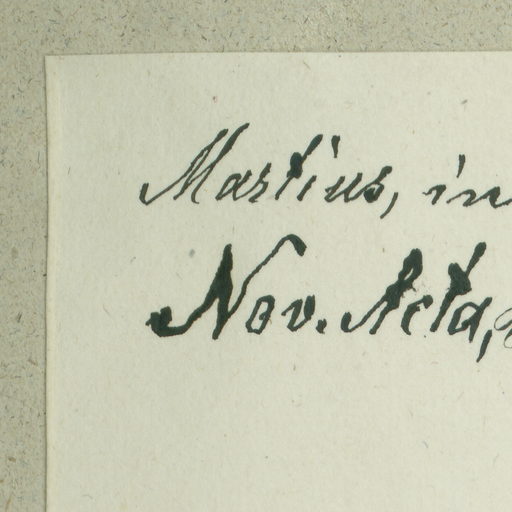 Martius, in
Nov. Acta,